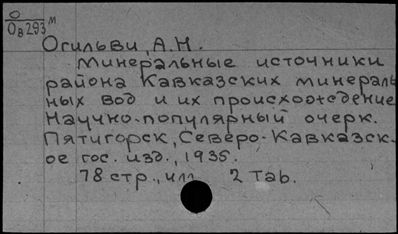 О
Ов293 м
Огильви, А.Н.
Минеральные источники
района Кавказских минераль
ных вод и их происхождение
Научно-популярный очерк.
Пятигорск, Северо-Кавказск.
ое гос. изд., 1935.
78 стр., илл 2 таб.